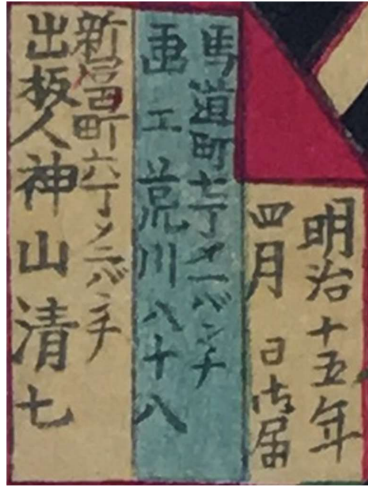 明治十五年
四月 日御届
馬道町七丁メ二バンチ
画工荒川八十八
新富町六丁メ二バンチ
出板人神山清七